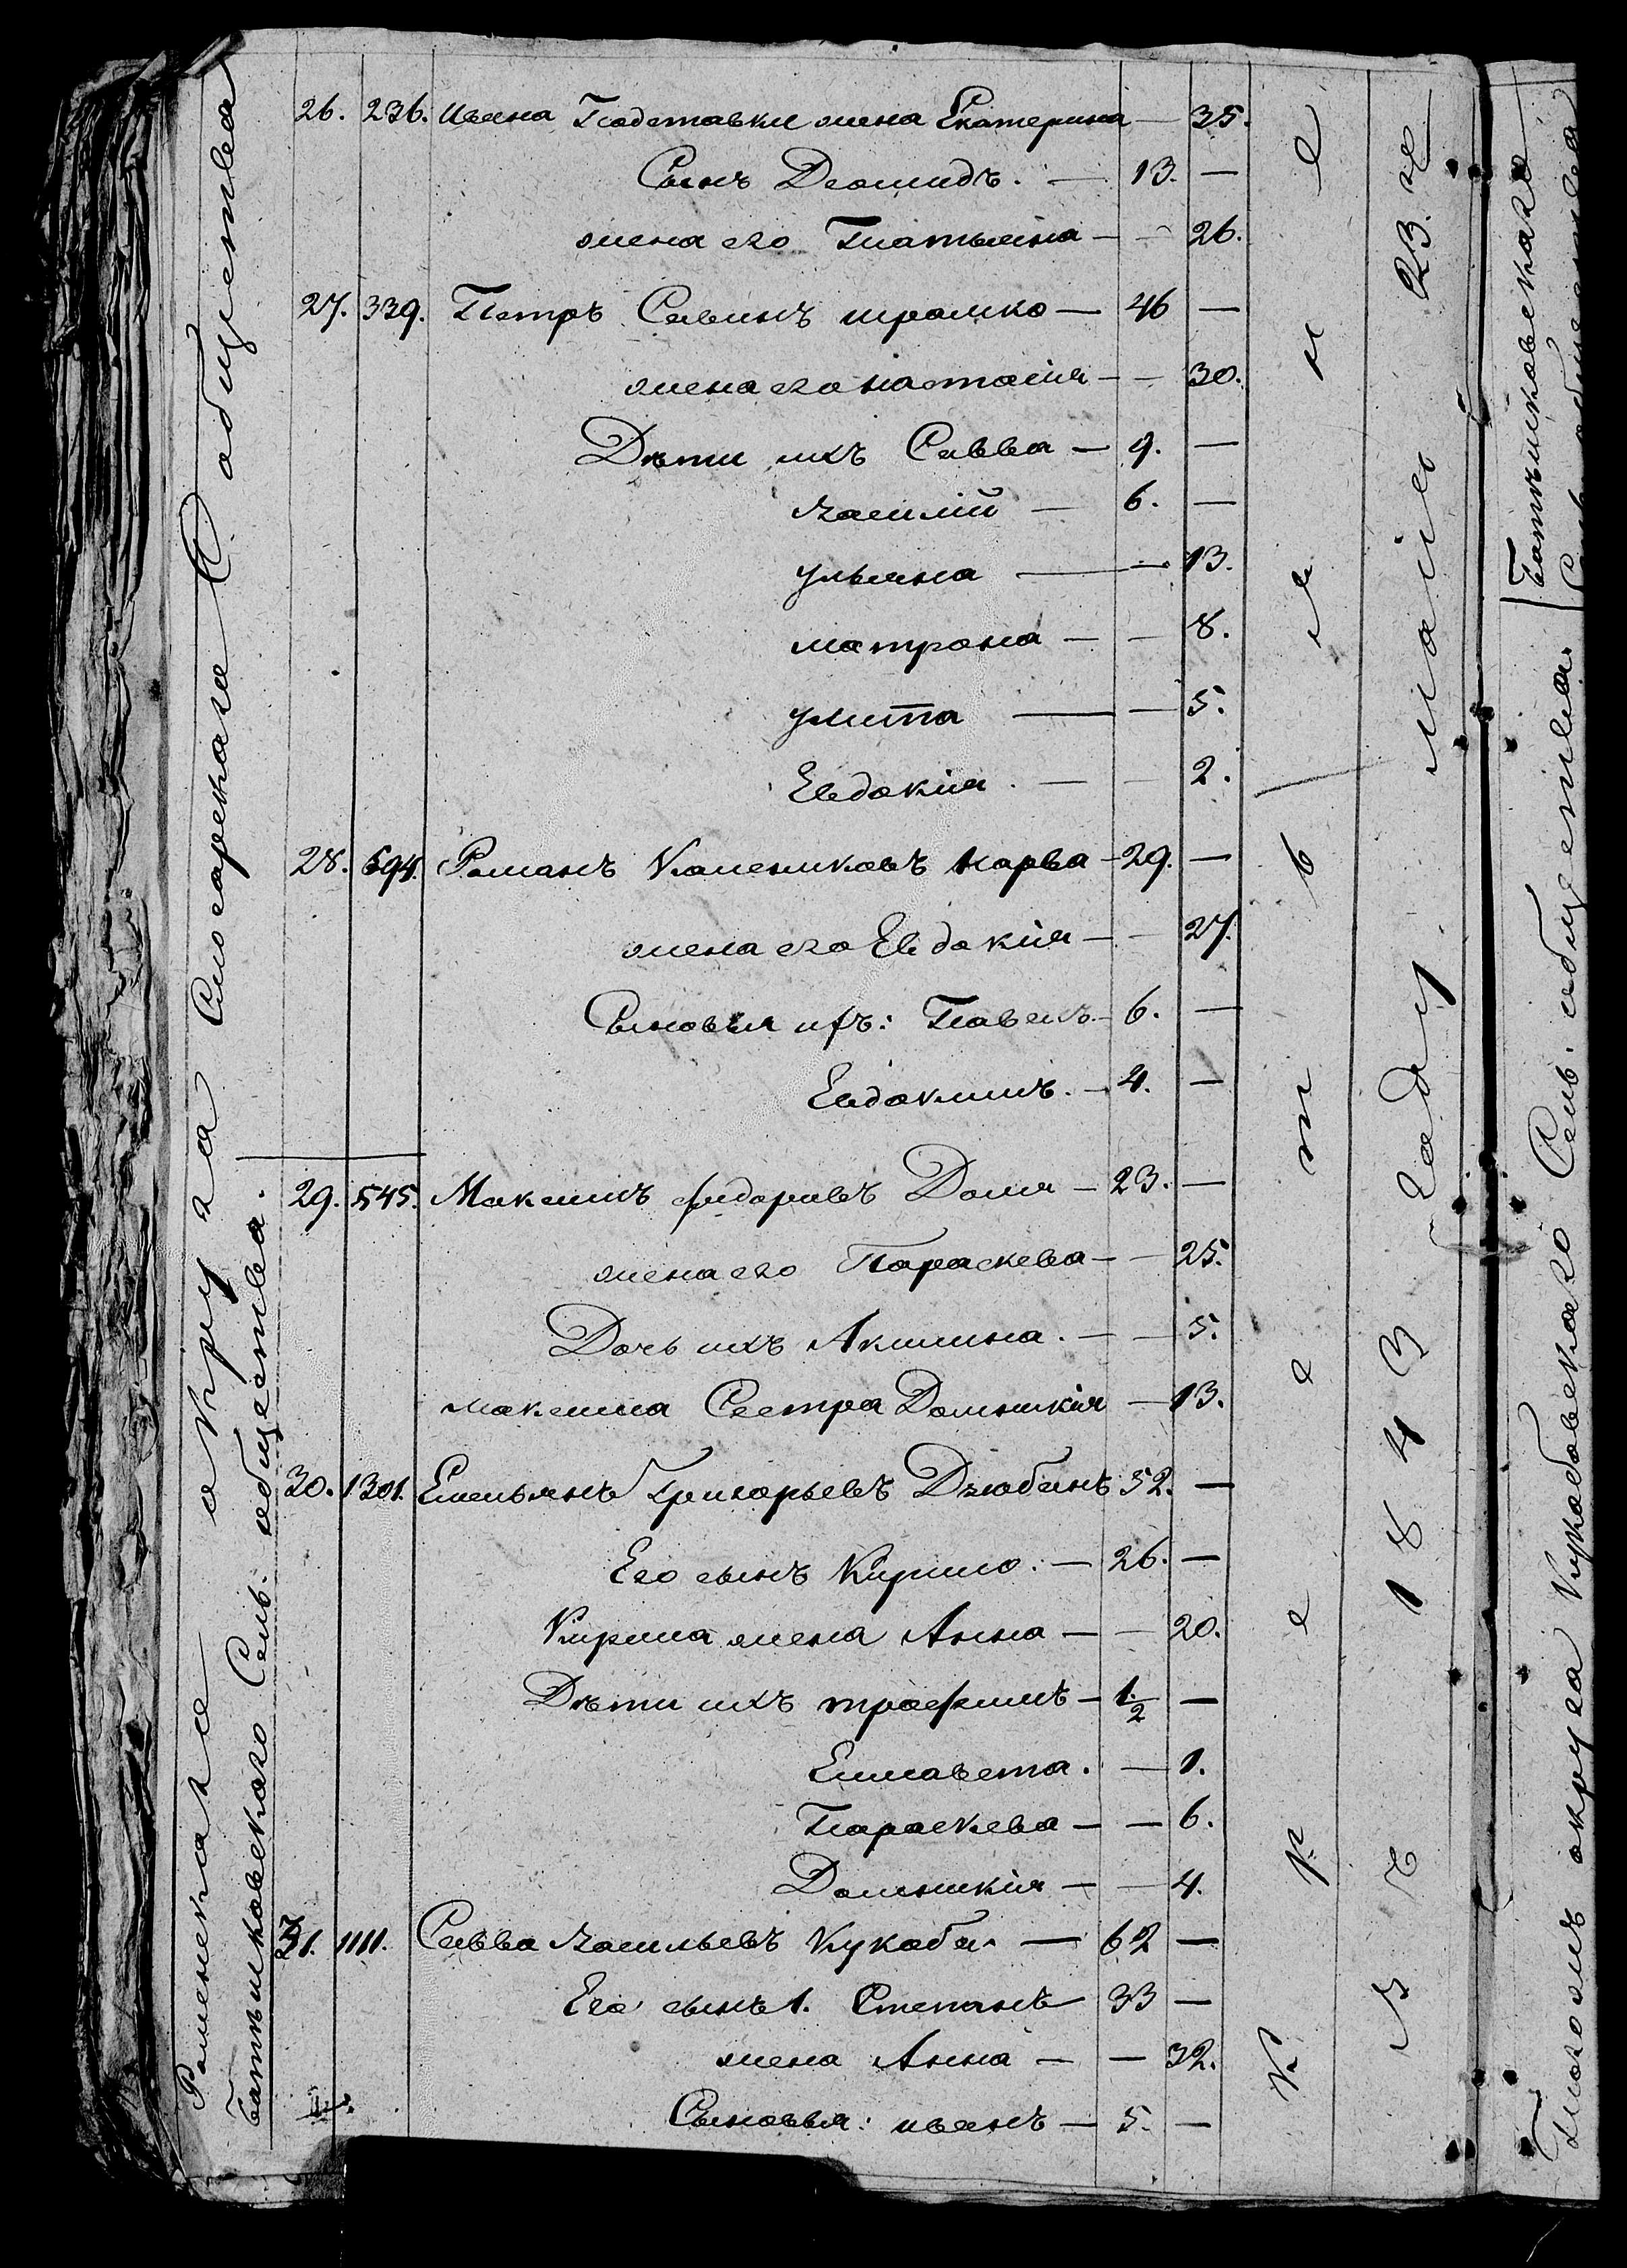 Роменскаго округа Слюсарскаго С. общества
Батышковскаго Сель. общества.
26. 236. Ивана Подставки жена Екатерина — 35.
Сынъ Деомидъ. — 13. —
жена его Татьяна — — 26.
27. 339. Петръ Савинъ шрамко — 46 —
жена его наталия — — 30.
Дѣти ихъ Савва — 9. —
василий — 6. —
ульяна — — 13.
матрона — — 8.
улита — — 5.
Евдокия. — — 2.
28. 594. Романъ Калениковъ карва — 29. —
жена его Евдокия — — 27.
Сыновья ихъ: Павелъ — 6. —
Евдокимъ. — 4. —
29. 545. Максимъ Фидоривъ Доля — 23. —
жена его Параскева — — 25.
Дочь ихъ Акилина. — — 5.
максима Сестра Домникия — 13.
30. 1301. Емельянъ Григорьевъ Дзюбанъ 52. —
Его сынъ Кирило. — 26. —
Кирила жена Анна — — 20.
Дѣти ихъ трофимъ — 1/2 —
Елисавета. — 1.
Параскева — — 6.
Домникия — — 4.
31. 1111. Савва васильевъ Кукоба. — 62 —
Его сынъ 1. Степанъ 33 —
жена Анна — — 32.
Сыновья: иванъ — 5. —
Переселены
въ 1843 году маія 23. че
Батышковскаго
Сель. общества.
округа Кукобовскаго Сель. общества